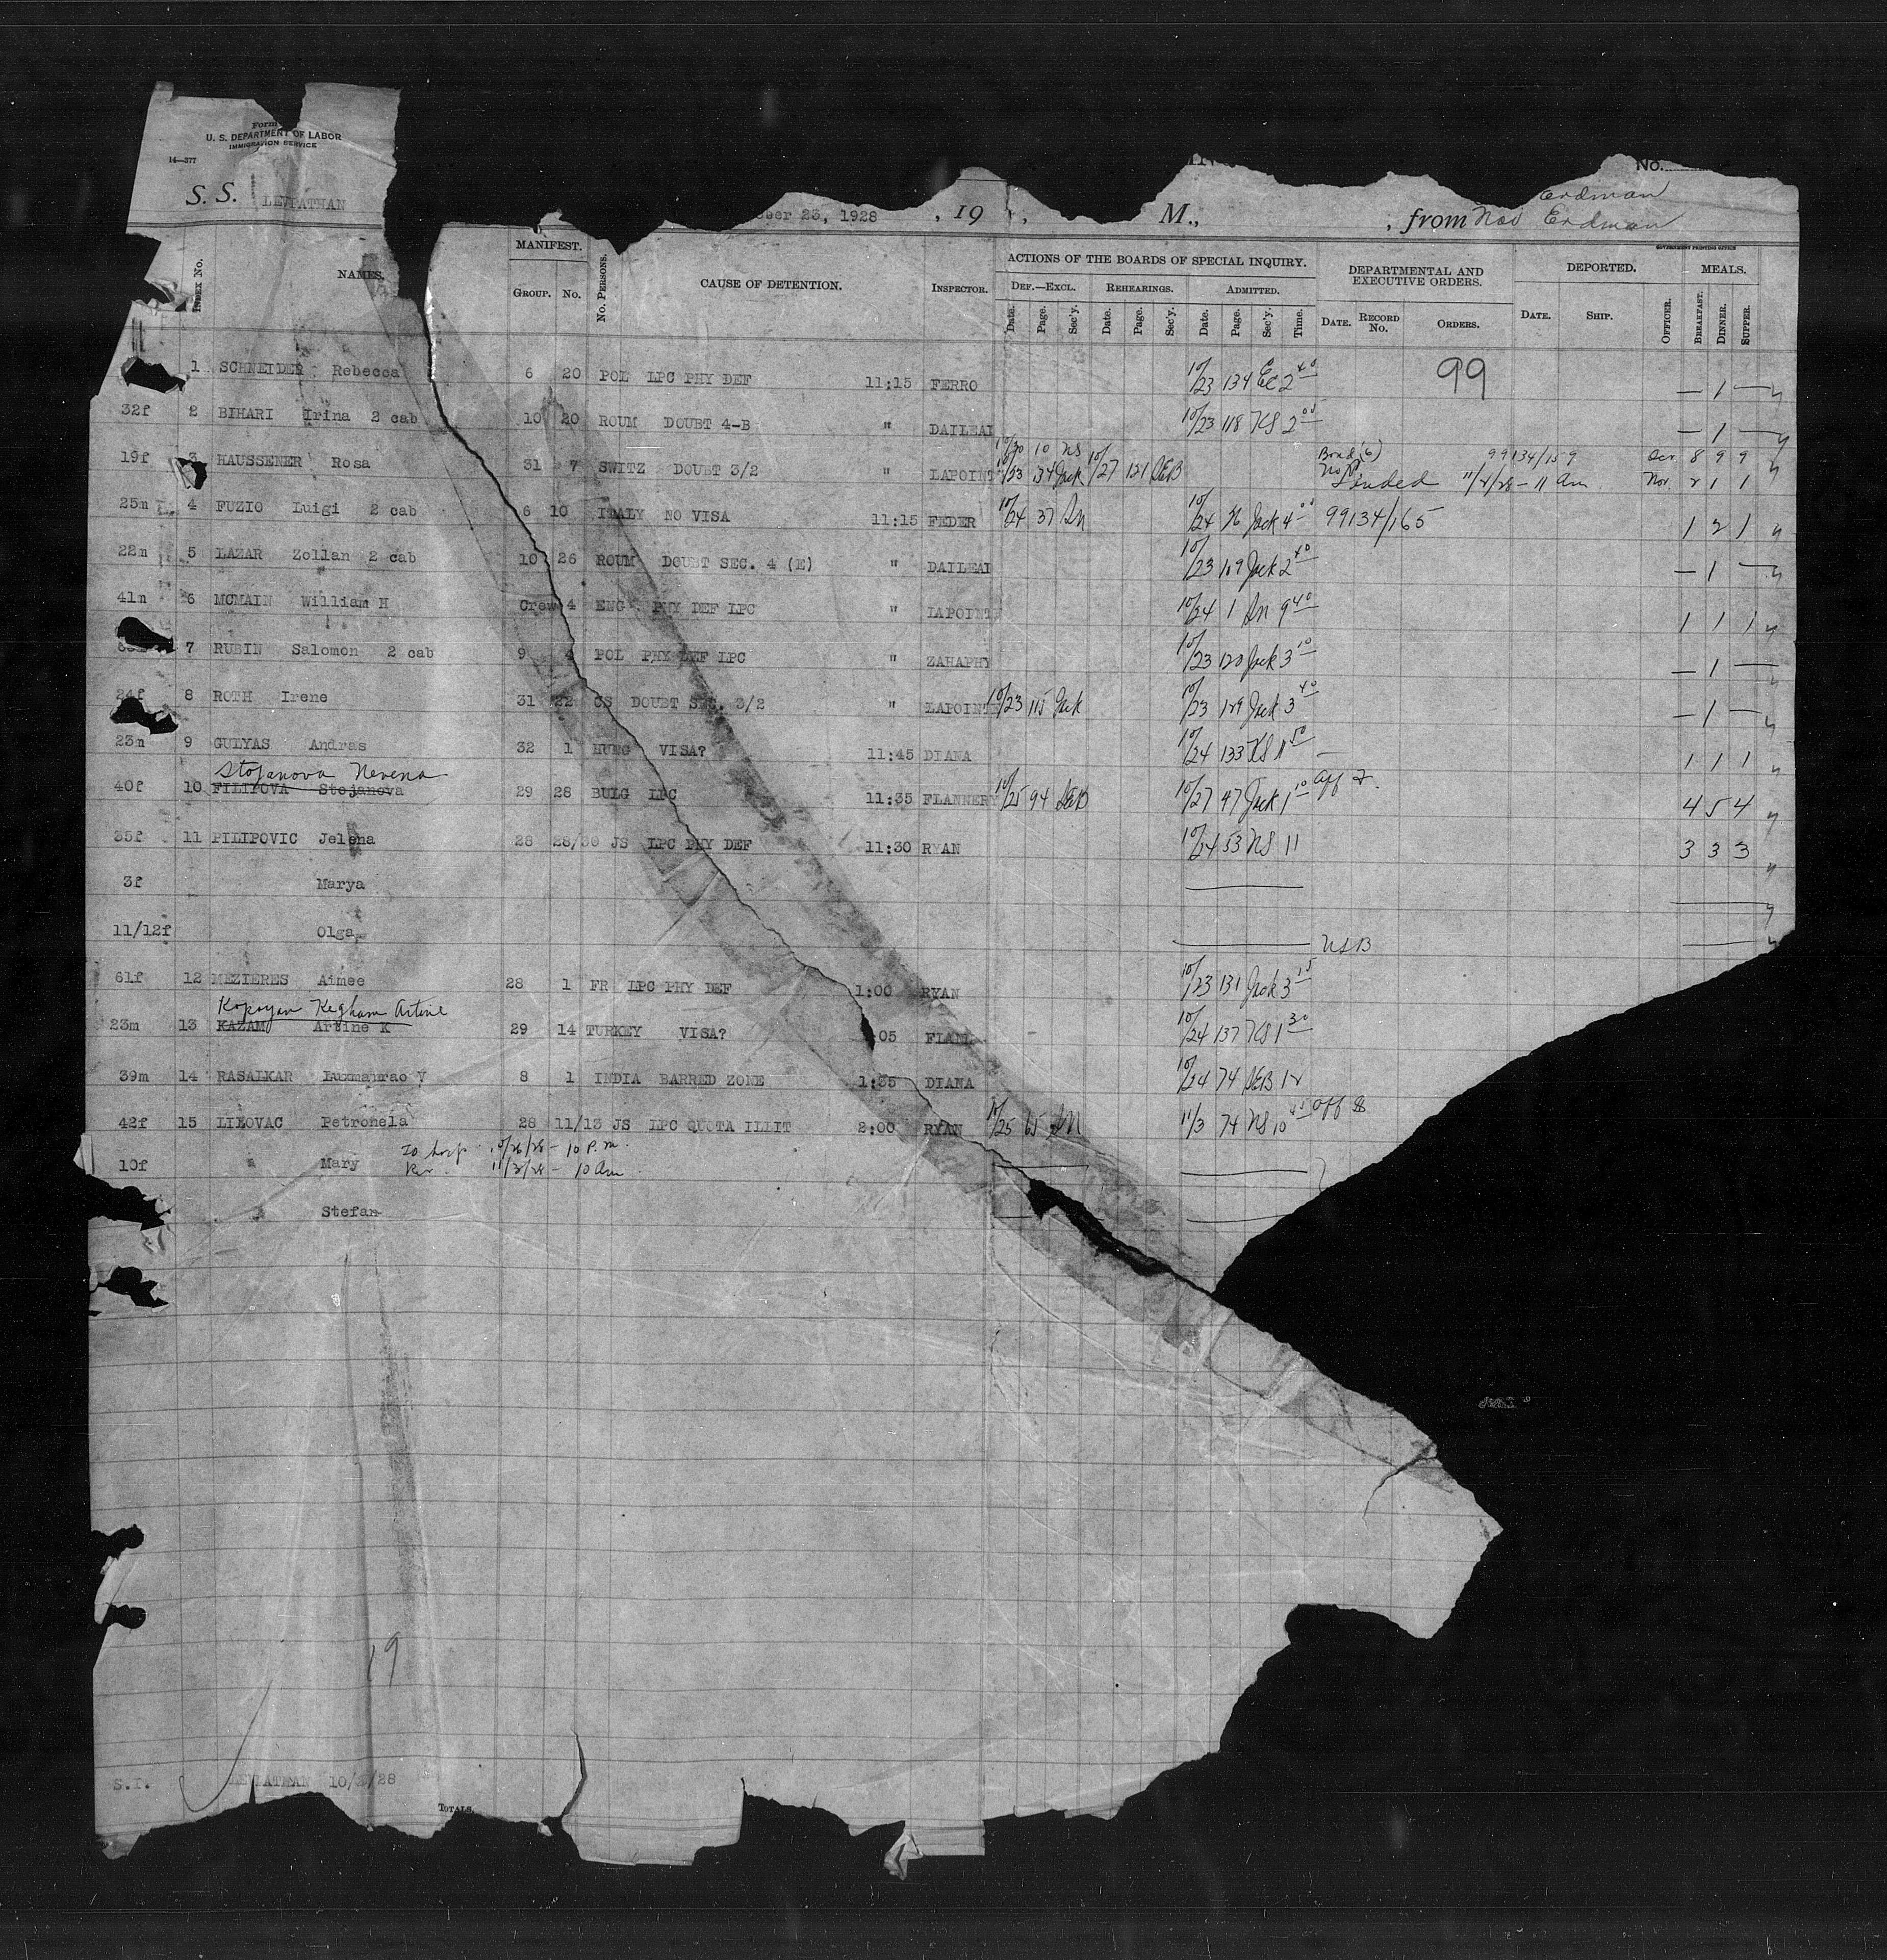 Form
U. S. DEPARTMENT OF LABOR
IMMIGRATION SERVICE
14—377
No.
S. S. LEVIATHAN 23, 1928 , 19 , M., , from Nov Erdman
Erdman
GOVERNMENT PRINTING OFFICE
INDEX No. NAMES. MANIFEST. GROUP. No. No. PERSONS. CAUSE OF DETENTION. INSPECTOR. ACTIONS OF THE BOARDS OF SPECIAL INQUIRY. DEF.—EXCL. Date. Page. Sec'y. REHEARINGS. Date. Page. Sec'y. ADMITTED. Date. Page. Sec'y. Time. DEPARTMENTAL AND EXECUTIVE ORDERS. DATE. RECORD No. ORDERS. DEPORTED. DATE. SHIP. OFFICER. MEALS. BREAKFAST. DINNER. SUPPER.
99
1 SCHNEIDER Rebecca 6 20 POL LPC PHY DEF 11:15 FERRO 10/23 134 EC 2 40 — 1 —
32f 2 BIHARI Irina 2 cab 10 20 ROUM DOUBT 4-B " DAILEAI 10/23 118 KS 2 00 — 1 —
10/30 10 NS Bond (6) 99134/159 Oct 8 9 9
19f 3 HAUSSENER Rosa 31 7 SWITZ DOUBT 3/2 " LAPOINT 10/23 134 Jack 10/27 121 SEB Landed 11/2/28 – 11 am Nov. 2 1 1
25m 4 FUZIO Luigi 2 cab 6 10 ITALY NO VISA 11:15 FEDER 10/24 37 SN 10/24 76 Jack 4 00 99134/165 1 2 1
22m 5 LAZAR Zollan 2 cab 10 26 ROUM DOUBT SEC. 4 (E) " DAILEAI 10/23 109 Jack 2 40 — 1 —
41m 6 MCMAIN William H Crew 4 ENG PHY DEF LPC " LAPOINT 10/24 1 SN 9 40 1 1 1
7 RUBIN Salomon 2 cab 9 4 POL PHY DEF LPC " ZAHAPHY 10/23 120 Jack 3 10 — 1 —
24f 8 ROTH Irene 31 22 CS DOUBT SEC. 3/2 " LAPOINT 10/23 115 Jack 10/23 129 Jack 3 40 — 1 —
23m 9 GULYAS Andras 32 1 HUNG VISA? 11:45 DIANA 10/24 133 KS 11 50 — 1 1 1
Stojanova Nevena
40f 10 FILIPOVA Stojanova 29 28 BULG LPC 11:35 FLANNERY 10/25 94 SEB 10/27 47 Jack 1 10 4 5 4
35f 11 PILIPOVIC Jelena 28 28/30 JS LPC PHY DEF 11:30 RYAN 10/24 53 NS 11 3 3 3
3f Marya
11/12f Olga NSB
61f 12 MEZIERES Aimee 28 1 FR LPC PHY DEF 1:00 RYAN 10/23 131 Jack 3 15
Kopoyan Kegham Artine
23m 13 KAZAM Artine K 29 14 TURKEY VISA? 05 FLANN 10/24 137 KS 1 30
39m 14 RASALKAR Luxmanrao V 8 1 INDIA BARRED ZONE 1:35 DIANA 10/24 74 SEB 12
42f 15 LILOVAC Petronela 28 11/13 JS LPC QUOTA ILLIT 2:00 RYAN 10/25 65 SN 11/3 74 NS 10 45
To hosp. 10/26/28 – 10 P.m.
10f " Mary 11/3/28 – 10 am
" Stefan
19
S.I. LEVIATHAN 10/ /28
TOTALS